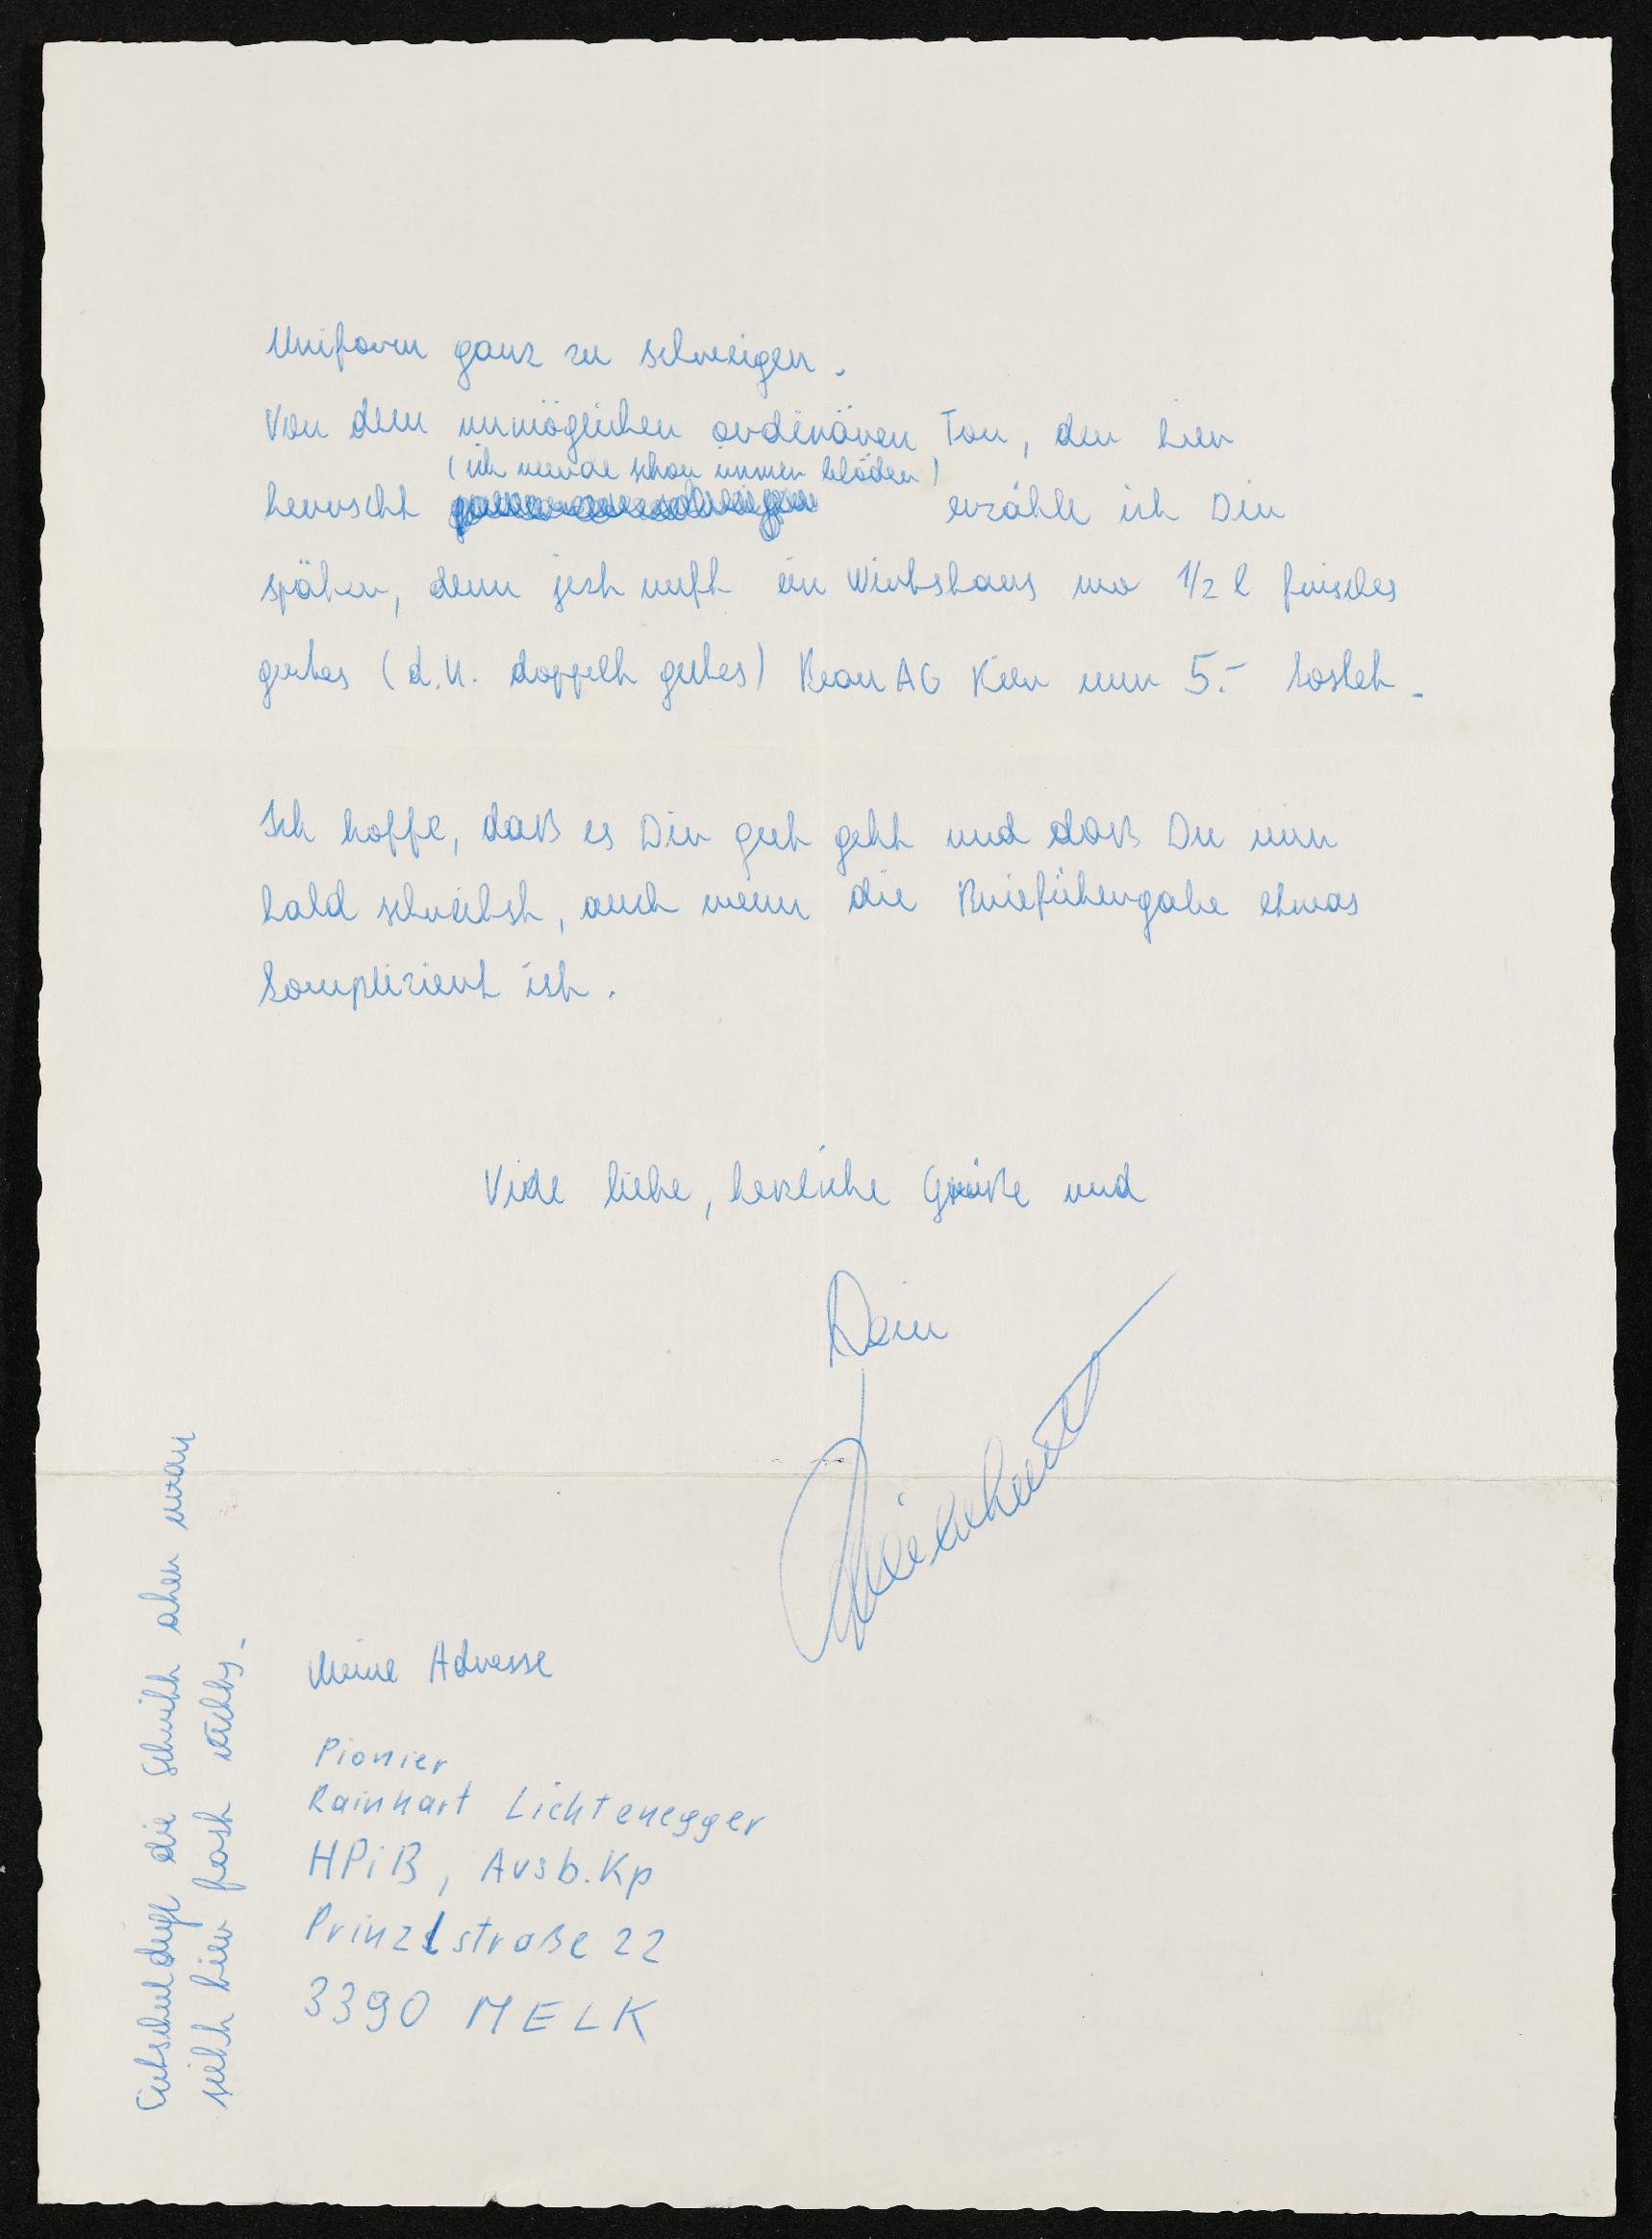 Uniform ganz zu schweigen.
Von dem unmöglichen ordinären Ton, der hier
(ich werde schon immer blöder)
herrscht erzähle ich Dir
später, denn jetzt ruft ein Wirtshaus wo 1/2 l frisches
gutes (d.h. doppelt gutes) Brau AG Bier nur 5.- kostet.
Ich hoffe, daß es Dir gut geht und daß Du mir
bald schreibst, auch wenn die Briefübergabe etwas
kompliziert ist.
Viele liebe, herzliche Grüße und
Dein
Rainhart
Meine Adresse
Pionier
Rainhart Lichtenegger
HPiB, Ausb.Kp
Prinzlstraße 22
3390 MELK
Entschuldige die Schrift aber man
sieht hier fast nichts.